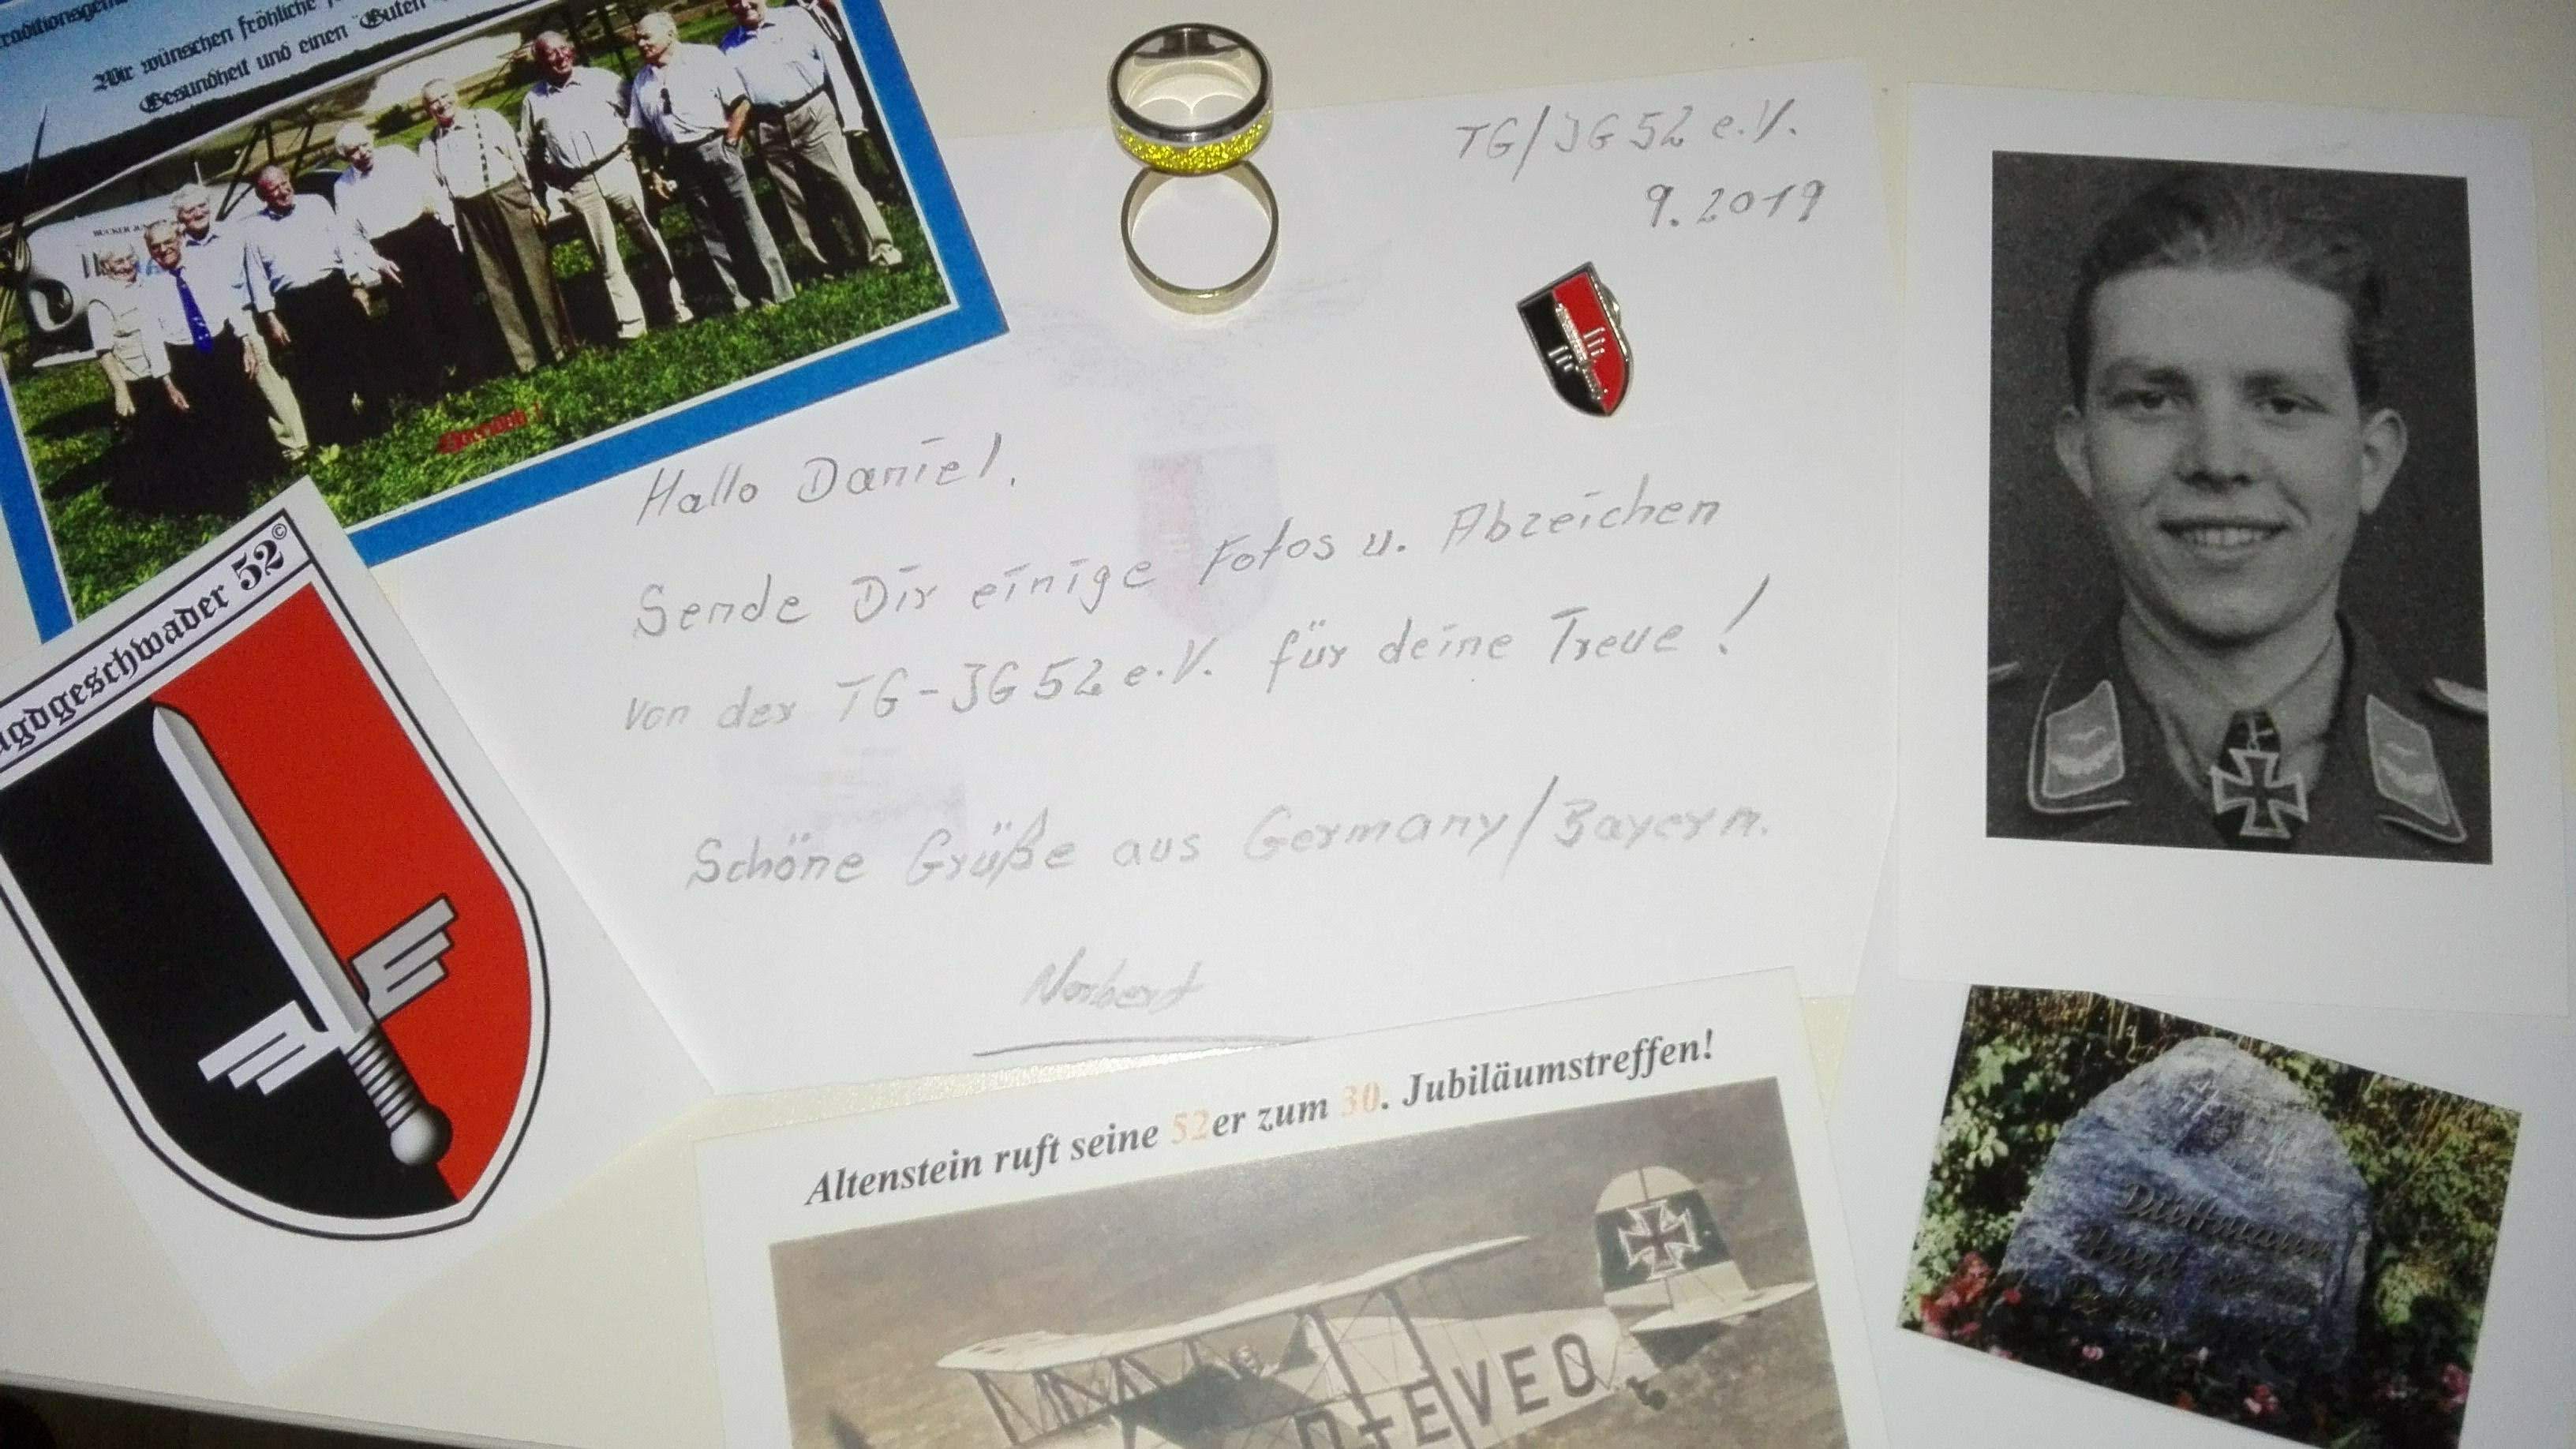 Wir wünschen fröhliche
Gesundheit und einen "Guten
BÜCKER
Horrido!
TG/JG 52 e.V.
9.2019
Hallo Daniel,
Sende Dir einige Fotos u. Abzeichen
von der TG-JG 52 e.V. für deine Treue!
Schöne Grüße aus Germany/Bayern.
Norbert
agdgeschwader 52©
Altenstein ruft seine 52er zum 30. Jubiläumstreffen!
D-EVEO
Düttmann